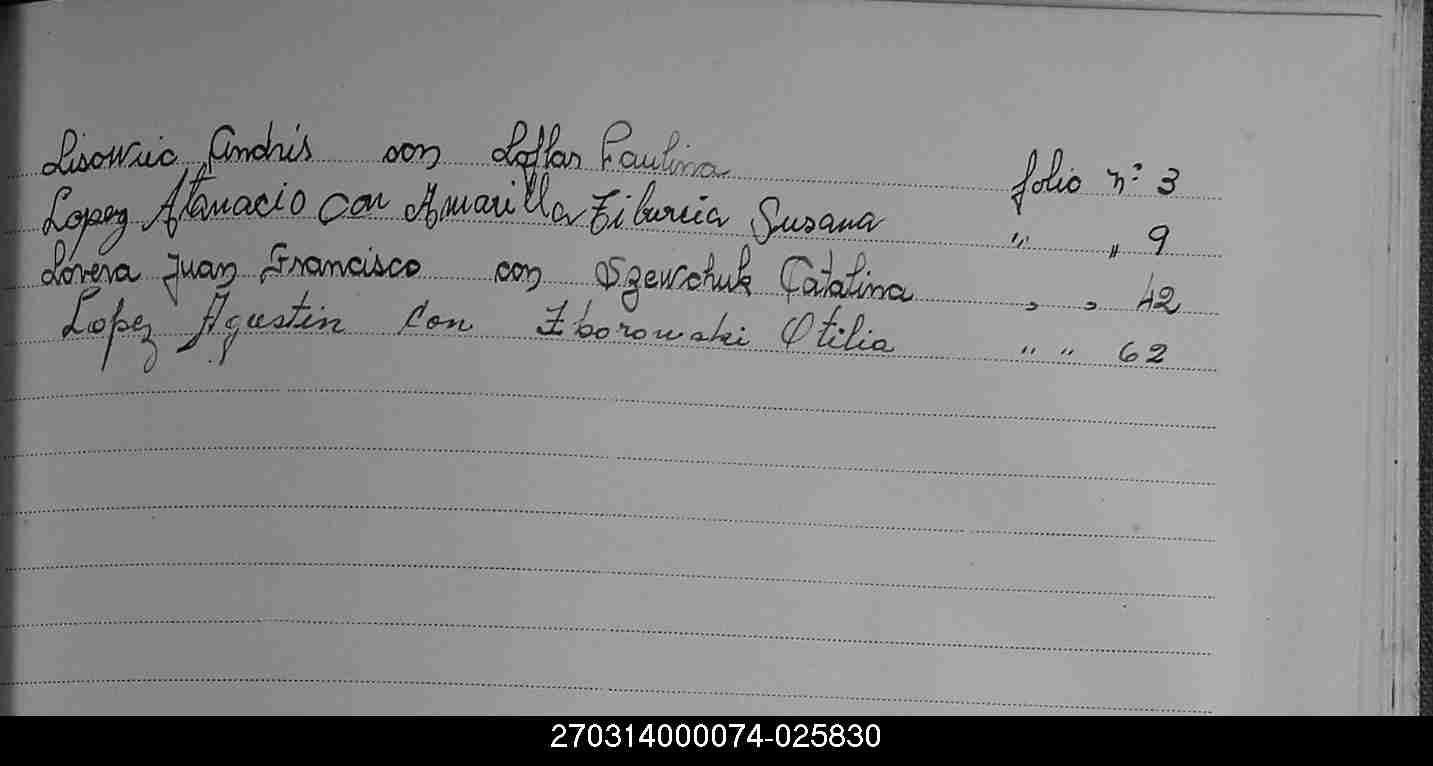 Lisowiic Andrés con Loflar Paulina folio nº 3
Lopez Atanacio con Amarilla Tiburcia Susana " " 9
Lovera Juan Francisco con Szewchuk Catalina " " 42
Lopez Agustin con Zborowski Otilia " " 62
270314000074-025830